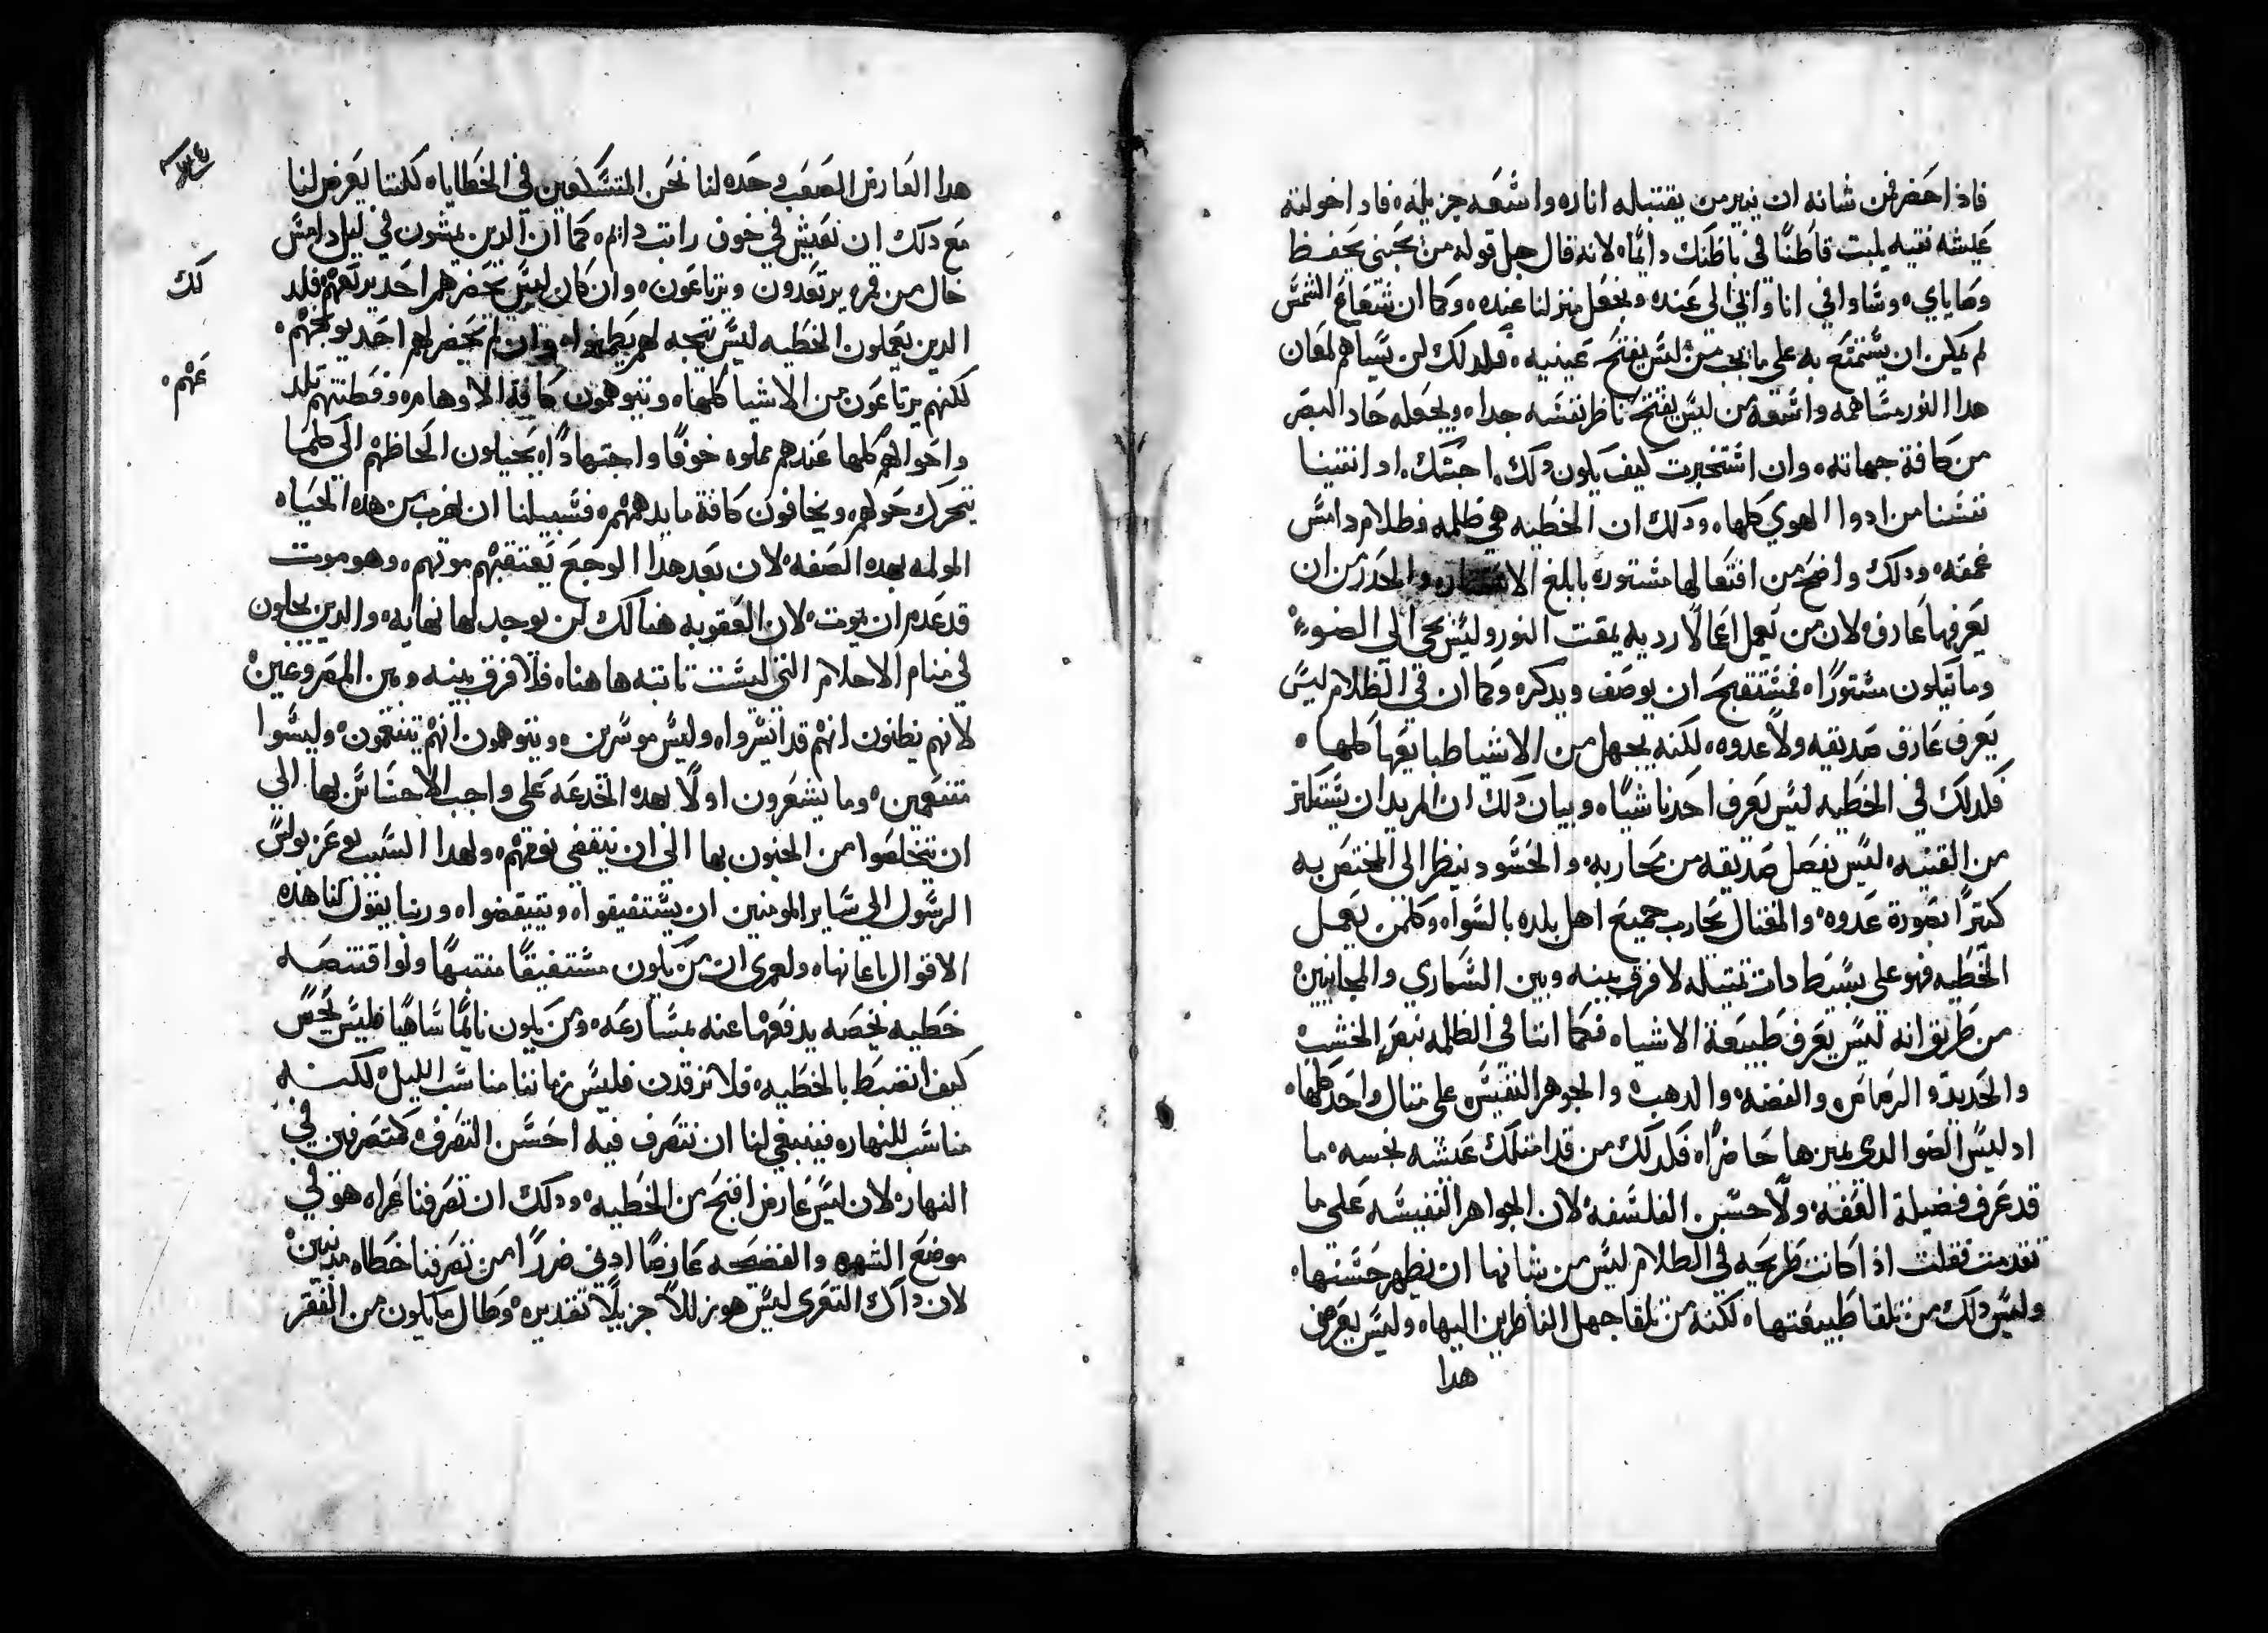 فاذ احضر فمن شانه ان ينير من يقتبله اناره واشعه جزيله، فاد اخولته
عيشه نقيه يلبت قاطنًا في باطنك دايمًا، لانه قال جل قوله من يحبني يحفظ
وصاياي، وساوافي انا واتي الى عنده ونجعل منزلنا عنده، وكما ان شعاع الشمس
لم يمكن ان يستمتع به على ما يجب من ليس يفتح عينيه، فلدلك لن يساهم لمعان
هدا النور مساهمه واسعه من ليس يفتح ناظر نفسه جدا، ويجعله حاد البصر
من كافة جهاته، وان استخبرت كيف يكون دلك، اجبتك، ادا نقينا
نفسنا من ادوا الهوي كلها، ودلك ان الخطيه هي ظلمه وظلام دامس
غمقه، ودلك واضح من افتعالها مستوره بابلغ الاستتار والحدر من ان
يعرفها عارف، لان من يعمل اعمالًا رديه يمقت النور وليس يجي الي الضوء
وما يكون مستورًا، فمستقبح ان يوصف ويدكر، وكما ان في الظلام ليس
يعرف عارف صديقه ولا عدوه، لكنه يجهل من الاشيا طبايعها كلها،
فلدلك في الخطيه ليس يعرف احدنا شيًا، وبيان دلك ان المريد ان يستكتر
من القنيه، ليس يفصل صديقه من محاربه، والحسود ينظر الى المختص به
كتيرًا بصورة عدوه، والمغتال يحارب جميع اهل بلده بالسواه، وكلمن يعمل
الخطيه فهو على بسيط دات تمتيله لا فرق بينه وبين السكاري والمجانين
من طريق انه ليس يعرف طبيعة الاشيا، فكما اننا في الظلمه نبصر الخشب
والحديد والرصاص والفضه، والدهب، والجوهر النفيس على متال واحد كلها،
اد ليس الضو الدي يميزها حاضرًا، فلدلك من قد امتلك عيشه نجسه، ما
قد عرف فضيلة العفه، ولا حسن الفلسفه، لان الجواهر النفيسه على ما
تقدمت فقلت اذا كانت طريحه في الظلام ليس من شانها ان يظهر حسنها،
وليس دلك من تلقا طبيعتها، لكنه من تلقا جهل الناظرين اليها، وليس يعرض
هدا
هدا العارض الصعب وحده لنا نحن المتسكعين في الخطايا، لكننا يعرض لنا
مع دلك ان نعيش في خوف راتب دايم، كما ان الدين يمشون في ليل دامس
خال من قمر، يرتعدون ويرتاعون، وان كان ليس يحضرهم احد يرهقهم، فلد
لك
الدين يعملون الخطيه ليس يتجه لهم يطمنوا، وان لم يحضرلهم احد يوبخهم،
لكنهم يرتاعون من الاشيا كلها، ويتوهمون كافة الاوهام، وفطنتهم تلد
عهم
واحوالهم كلها عندهم مملوه خوفًا واجتهادًا، يحيلون الحاظهم الى كلما
يتحرك حولهم، ويخافون كافة ما يدهمهم، فسبيلنا ان نهرب من هده الحياه
المولمه بهده الصفه، لان بعد هدا الوجع يعتقبهم موتهم، وهو موت
قد عدم ان يموت، لان العقوبه هنالك لن يوجد لها نهايه، والدين يحلون
في منام الاحلام التي ليست تابته هاهنا، فلا فرق بينه وبين المصروعين
لانهم يظنون انهم قد ايسروا، وليس موسرين، ويتوهمون انهم يتنعمون، وليسوا
متنعمين، وما يشعرون اولًا بهده الخدعه على واجب الاحساس بها، الي
ان يتخلصوا من الجنون بها، الى ان ينقضي نومهم، ولهدا السبب يوعز بولس
الرسول الي ساير المومنين ان يستفيقوا، ويتيقضوا، وربنا يقول لنا هده
الاقوال باعيانها، ولعمري ان من يكون مستفيقًا منتبهًا ولو اقتنصه
خطيه تخصه يدفعها عنه بمسارعه، ومن يكون نايمًا ساهيًا فليس يحس
كيف انضبط بالخطيه، فلا نرقدن فليس زماننا مناسب الليل، لكنه
مناسب للنهار، فينبغي لنا ان نتصرف فيه احسن التصرف، كمتصرفين في
النهار، لان ليس عارض اقبح من الخطيه، ودلك ان تصرفنا عراه هو في
موضع الشهره والفضحه عارضًا ادني ضررًا من تصرفنا خطاه مدنبين
لان داك التعري ليس هو زللًا جزيلًا تقديره، وطال ما يكون من الفقر